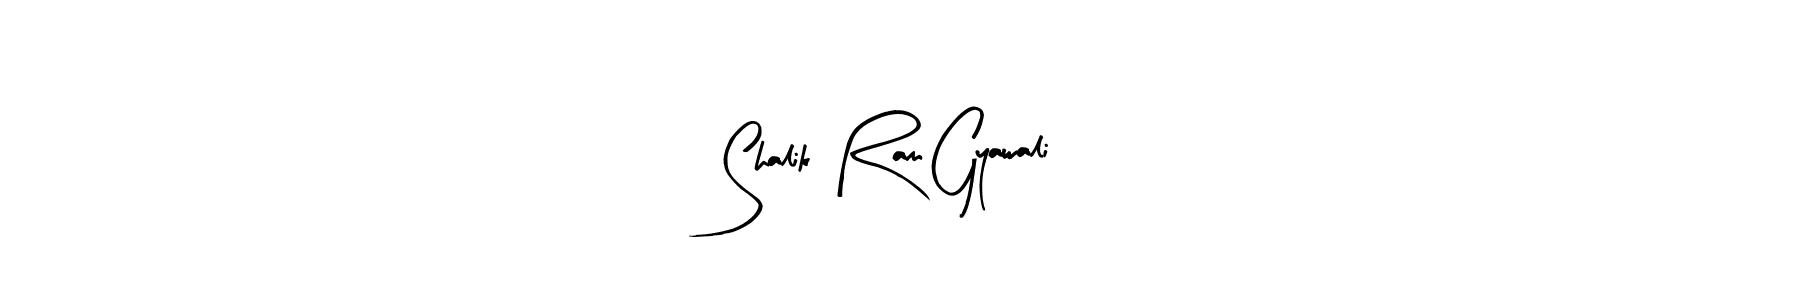 Shalik Ram Gyawali